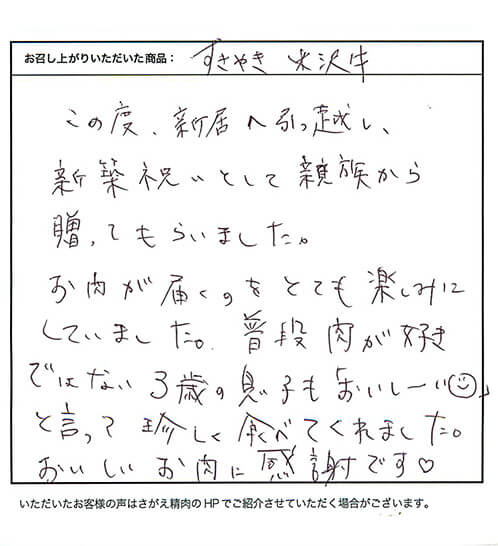 お召し上がりいただいた商品： すきやき 米沢牛
この度、新居へ引っ越し、
新築祝いとして親族から
贈ってもらいました。
お肉が届くのをとても楽しみに
していました。普段肉が好き
ではない3歳の息子も「おいしーい☺」
と言って珍しく食べてくれました。
おいしいお肉に感謝です♡
いただいたお客様の声はさがえ精肉のHPでご紹介させていただく場合がございます。